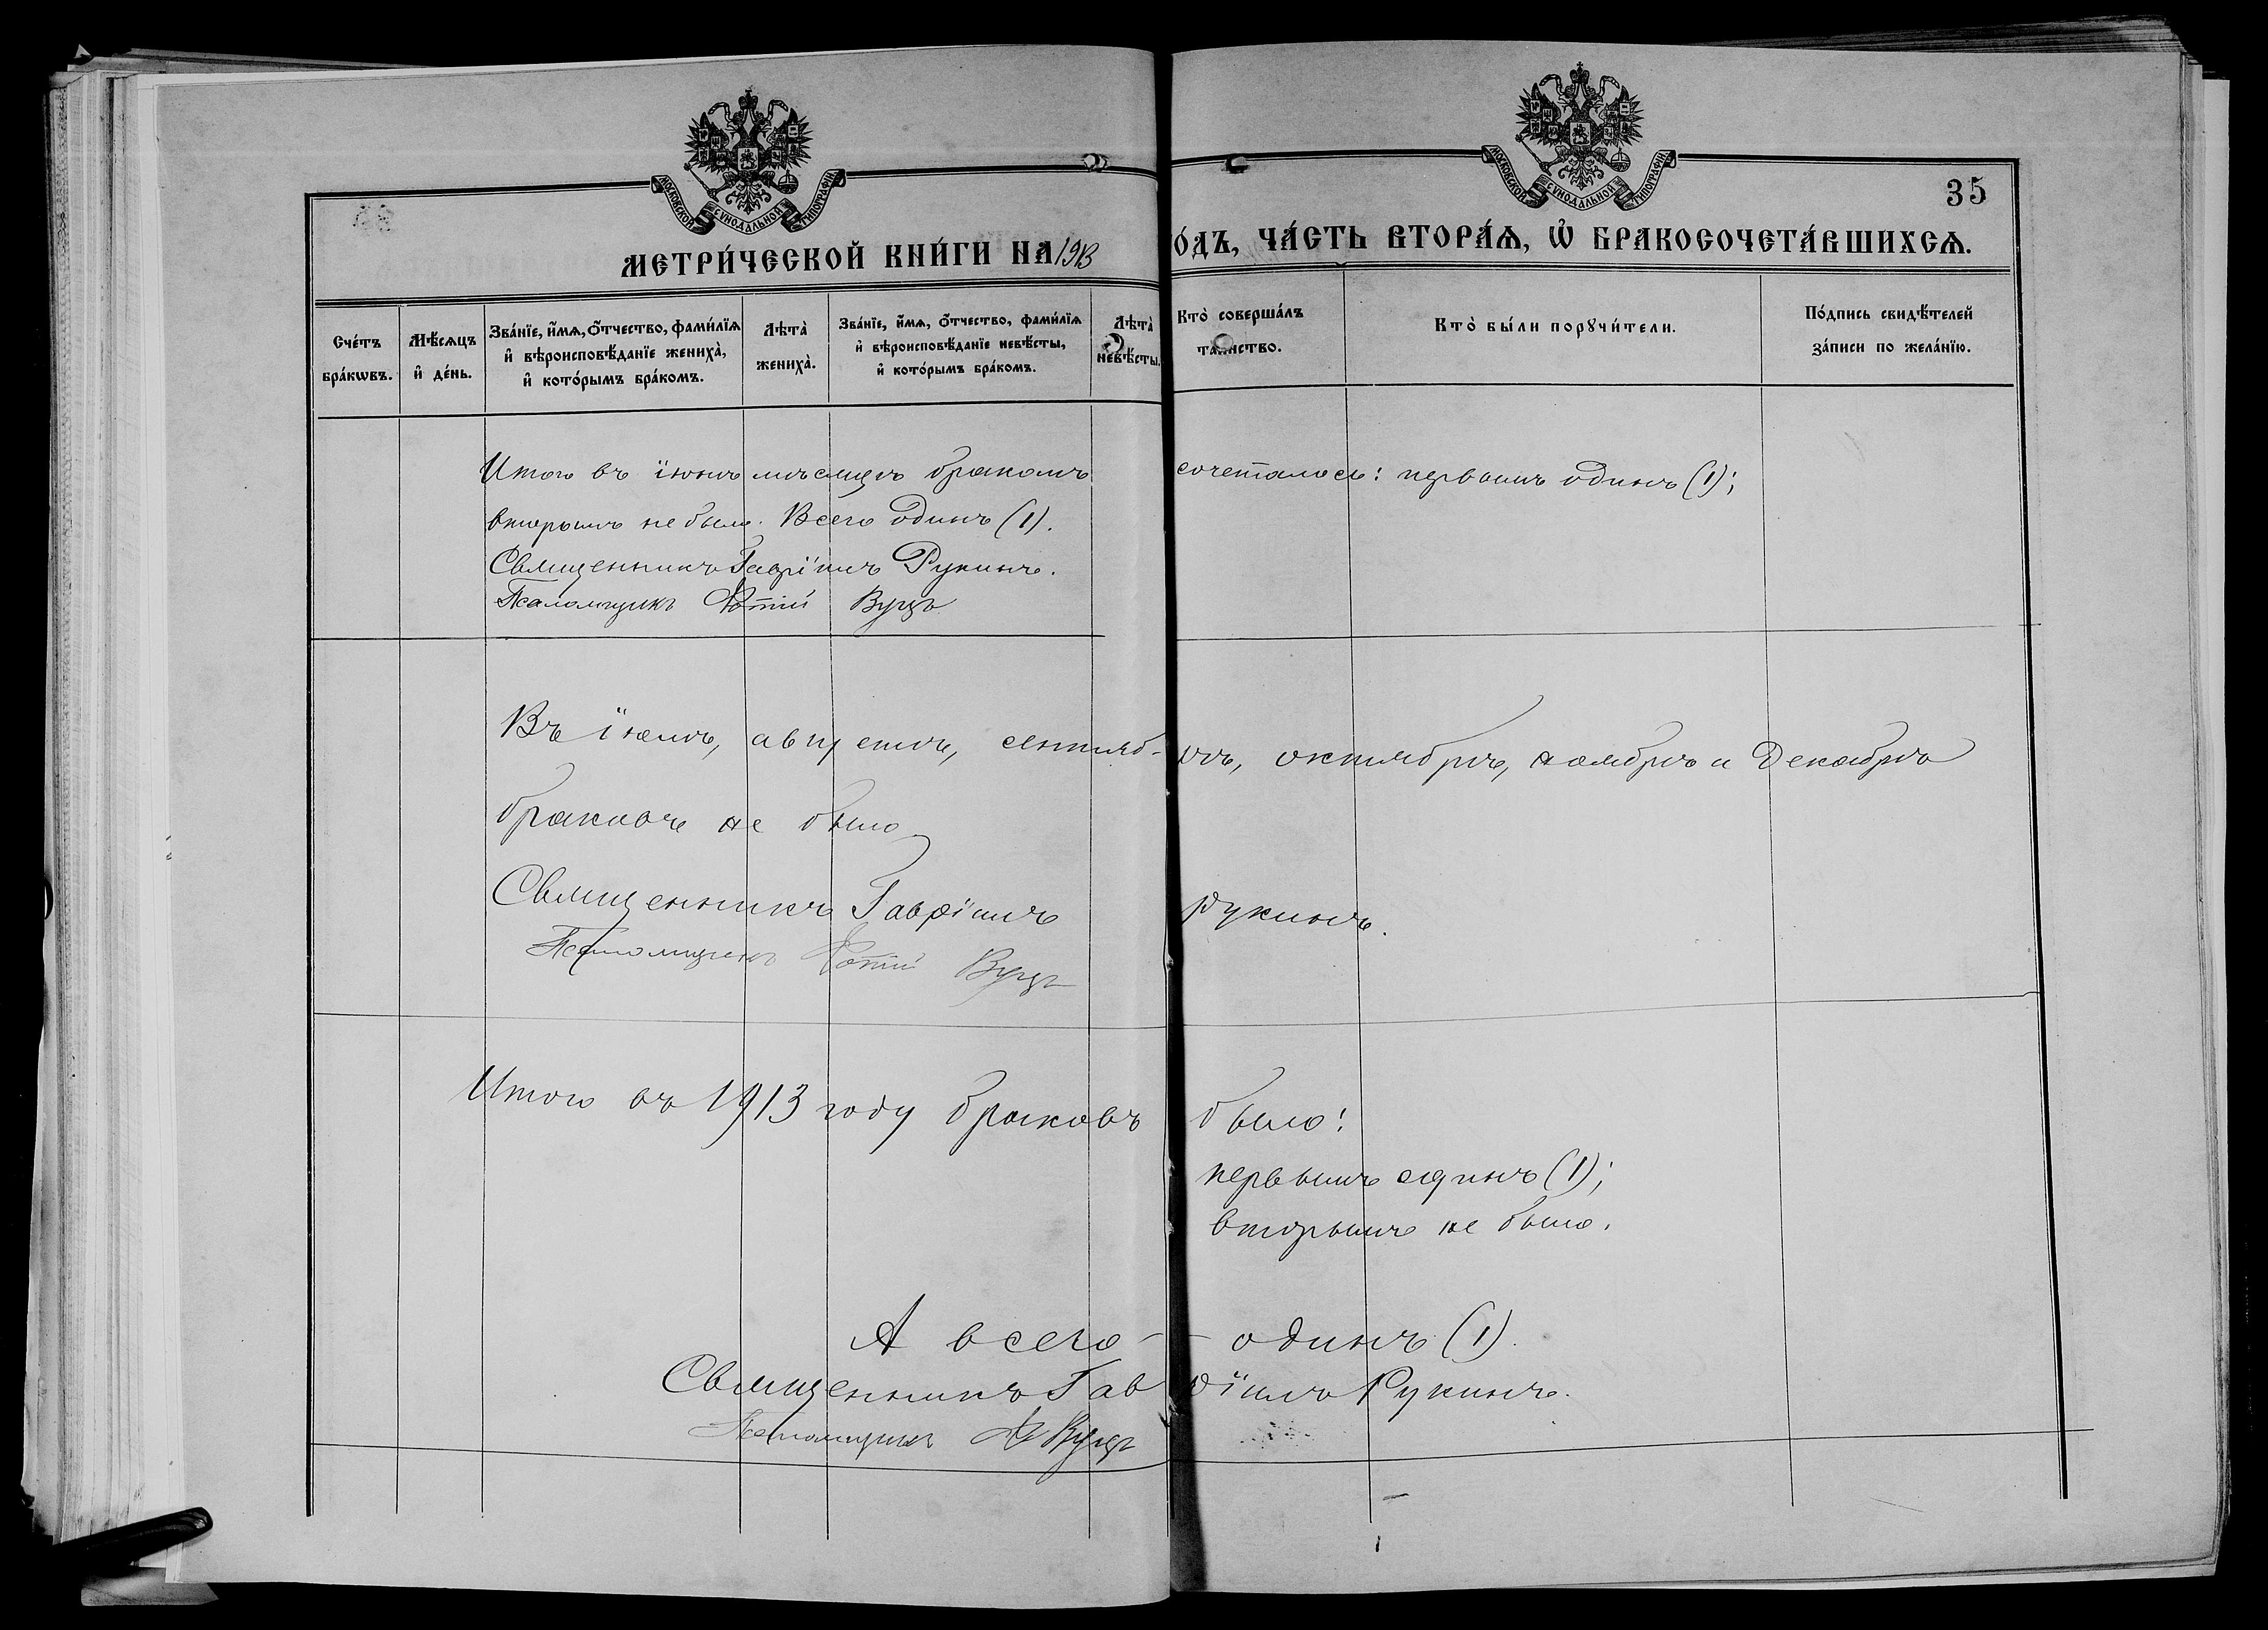 МОСКОВСКОЙ СѴНОДАЛЬНОЙ ТИПОГРАФІИ
МОСКОВСКОЙ СѴНОДАЛЬНОЙ ТИПОГРАФІИ
35
МЕТРИ́ЧЕСКОЙ КНИ́ГИ НА 1913
О́ДЪ, ЧА́СТЬ ВТОРА́Ѧ, Ѽ БРАКОСОЧЕТА́ВШИХСѦ.
Сче́тъ бра́кѡвъ.
Мѣ́сѧцъ и҆ де́нь.
Зва́нїе, и҆́мѧ, ѻ҆́тчество, фами́лїѧ и҆ вѣроисповѣ́данїе жениха̀, и҆ кото́рымъ бра́комъ.
Лѣта̀ жениха̀.
Зва́нїе, и҆́мѧ, ѻ҆́тчество, фами́лїѧ и҆ вѣроисповѣ́данїе невѣ́сты, и҆ кото́рымъ бра́комъ.
Лѣта̀ невѣ́сты.
Кто̀ соверша́лъ та́инство.
Кто̀ бы́ли порꙋчи́тели.
По́дпись свидѣ́телей за́писи по жела́нїю.
Итого въ іюнѣ мѣсяцѣ бракомъ сочеталось: первымъ одинъ (1);
вторымъ не было. Всего одинъ (1).
Священникъ Гавріилъ Рукинъ.
Псаломщикъ Фотій Вуцъ
Въ іюлѣ, августѣ, сентяб-рѣ, октябрѣ, ноябрѣ и Декабрѣ
браковъ не было
Священникъ Гавріилъ Рукинъ.
Псаломщикъ Фотій Вуцъ
Итого въ 1913 году браковъ было:
первымъ одинъ (1);
вторымъ не было.
А всего - - одинъ (1).
Священникъ Гавріилъ Рукинъ.
Псаломщикъ Ф Вуцъ